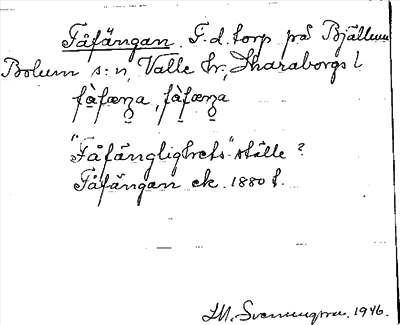 Fåfängan. F. d. torp på Bjällum
Bolum s:n, Valle hr, Skaraborgs l.
fåfæŋa, fåfæŋa
"Fåfänglighets"ställe?
Fåfängan ek. 1880 t.
1946.